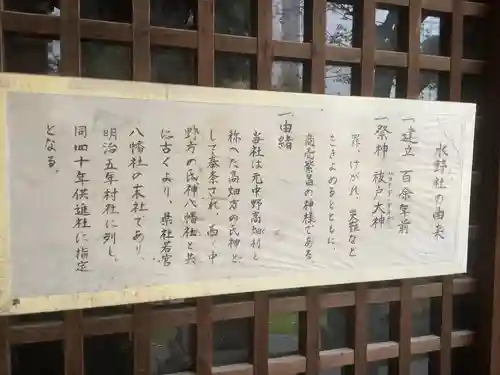 水野社の由来
一建立 百余年前
一祭神 祓戸大神
罪、けがれ、災難など
ときよめるとともに、
商売繁昌の神様である。
一由緒
当社は元中野高畑村と
称へた高畑方の氏神と
して奉斎され、西、中
野方の氏神八幡社と共
に古くより、県社若宮
八幡社の末社であり、
明治五年村社に列し、
同四十年供進社に指定
となる。